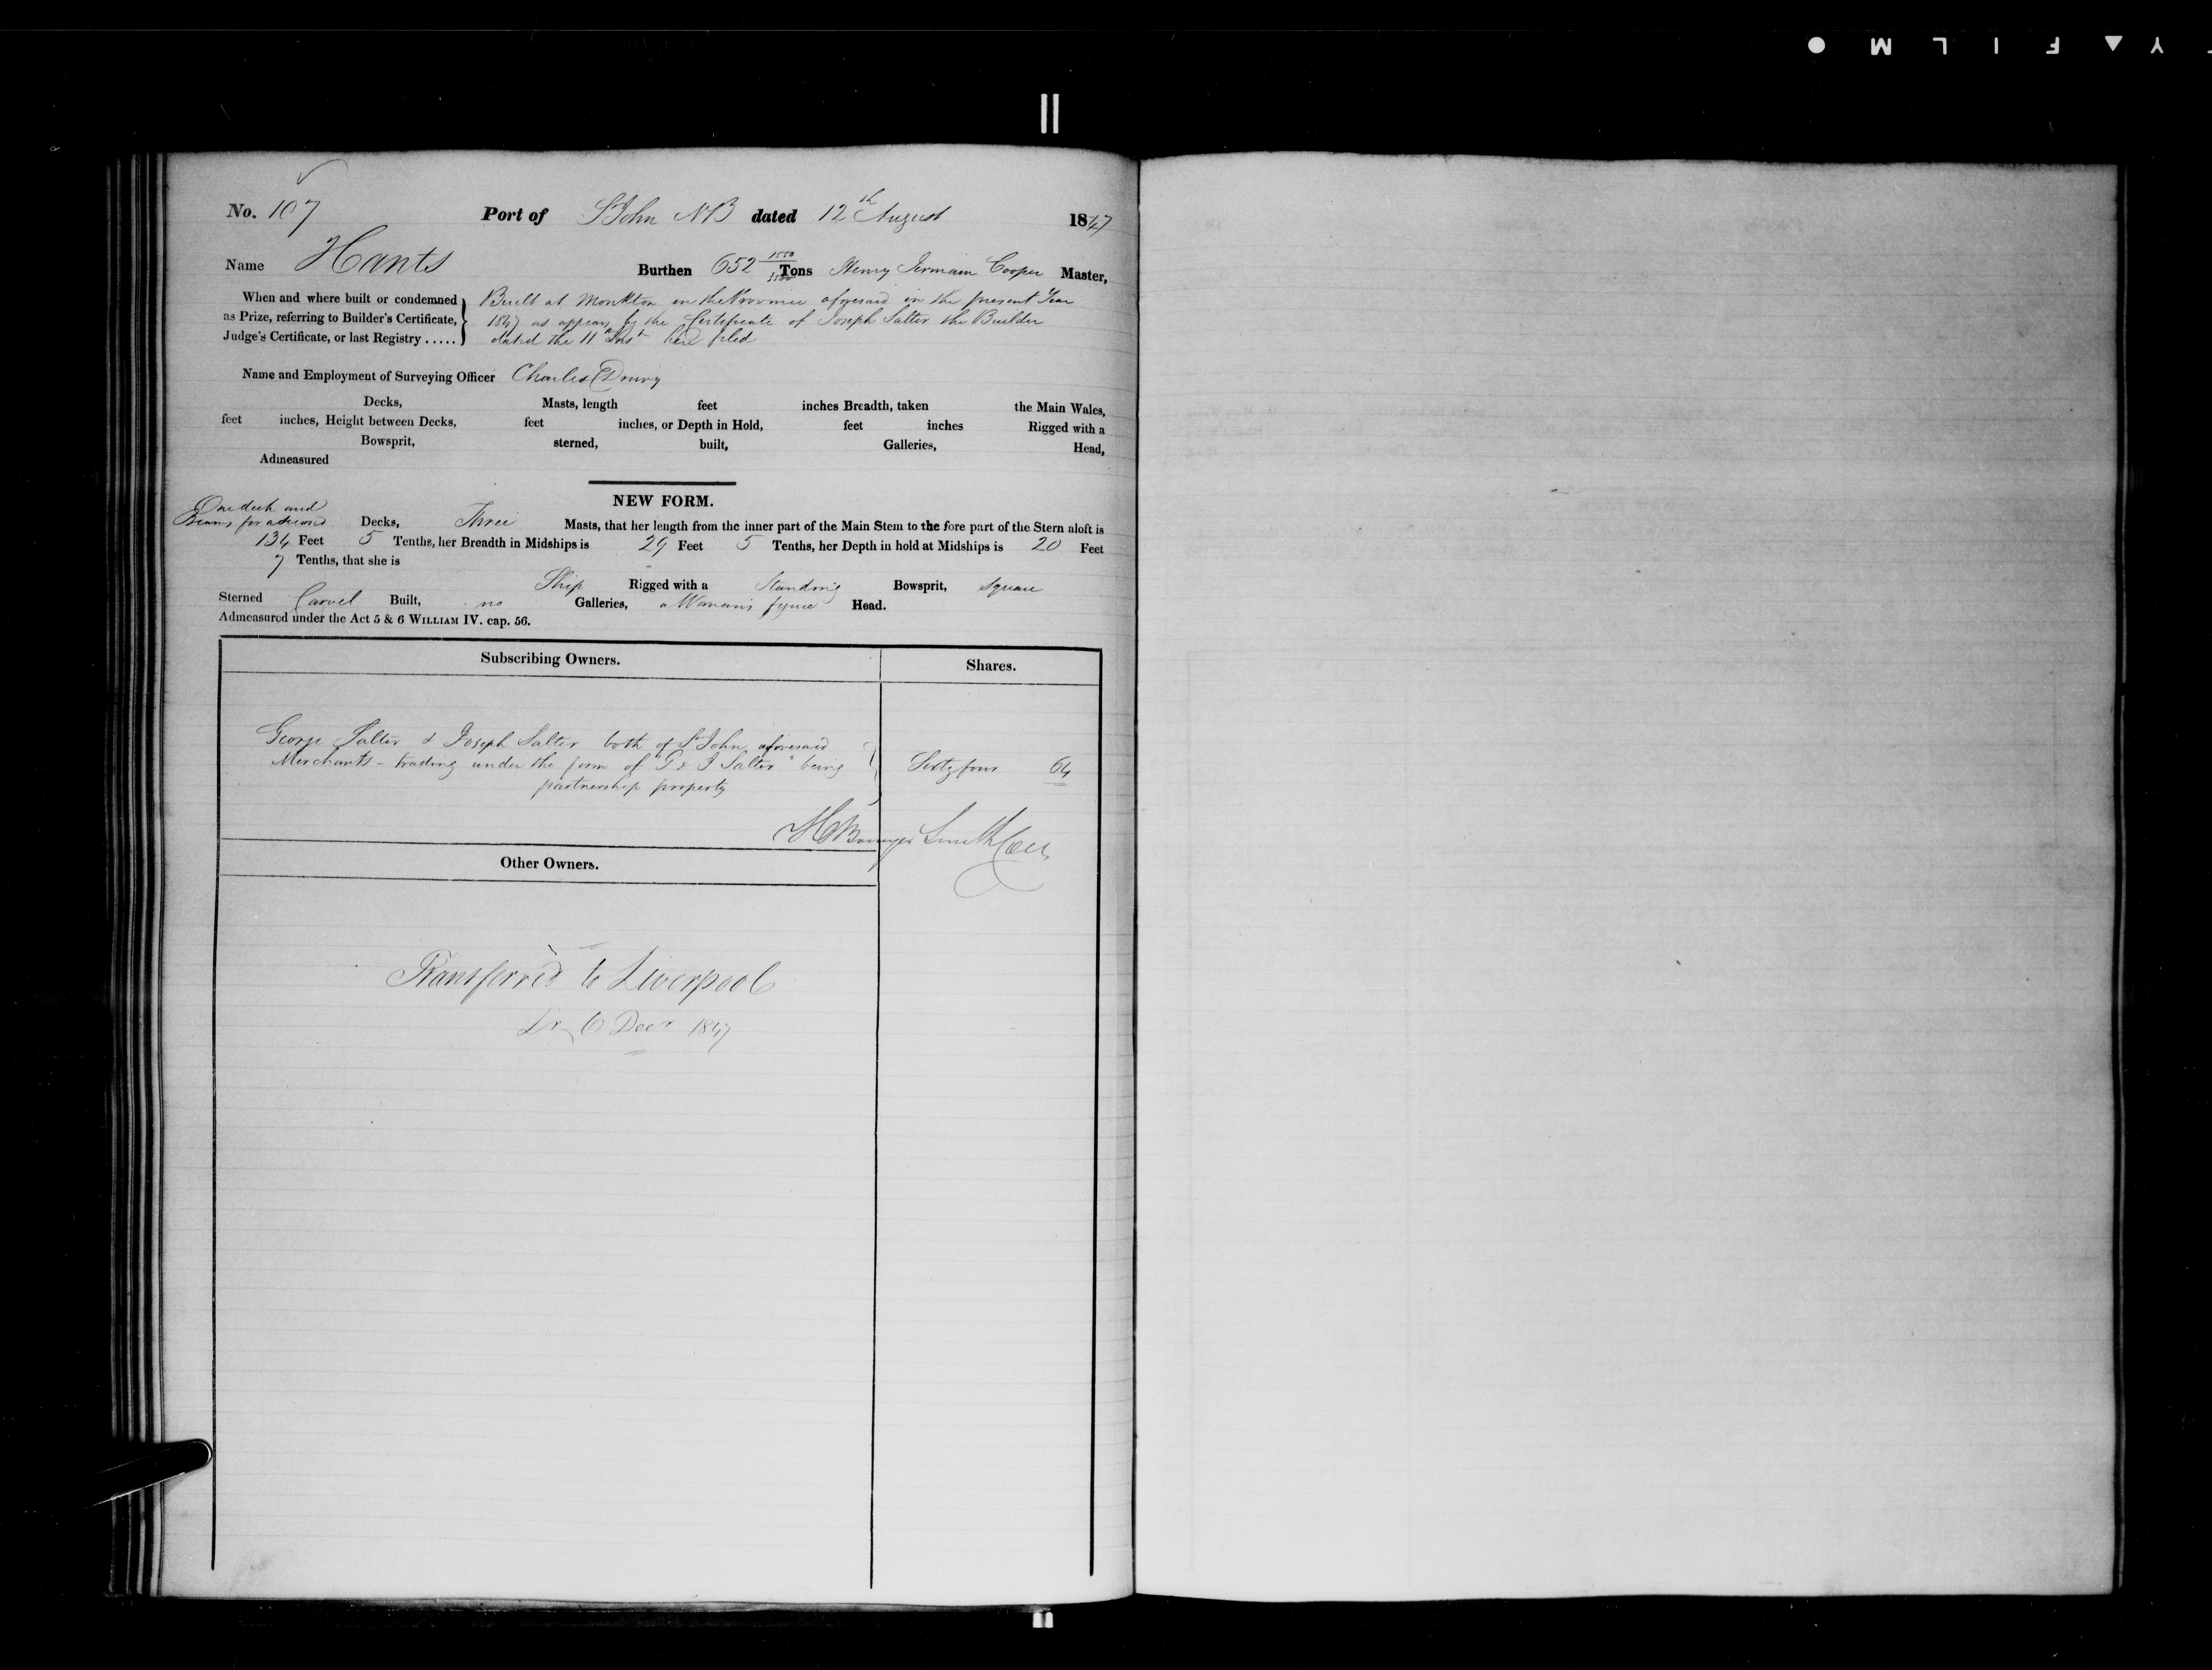 Y ▲ F I L M ●
No. 107 Port of St John NB dated 12th August 1847
Name Hants Burthen 652 1550/3500 Tons Henry Jermain Cooper Master,
When and where built or condemned as Prize, referring to Builder's Certificate, Judge's Certificate, or last Registry .....
Built at Monkton in the Province aforesaid in the present Year
1847 as appears by the Certificate of Joseph Salter the Builder
dated the 11th Inst here filed
Name and Employment of Surveying Officer Charles Drury
Decks, Masts, length feet inches Breadth, taken the Main Wales,
feet inches, Height between Decks, feet inches, or Depth in Hold, feet inches Rigged with a
Bowsprit, sterned, built, Galleries, Head,
Admeasured
NEW FORM.
One deck and
Beams for a second Decks, Three Masts, that her length from the inner part of the Main Stem to the fore part of the Stern aloft is
134 Feet 5 Tenths, her Breadth in Midships is 29 Feet 5 Tenths, her Depth in hold at Midships is 20 Feet
7 Tenths, that she is
Ship Rigged with a Standing Bowsprit, Square
Sterned Carvel Built, no Galleries, a Woman's figure Head.
Admeasured under the Act 5 & 6 WILLIAM IV. cap. 56.
Subscribing Owners. Shares.
George Salter & Joseph Salter both of St John aforesaid
Merchants - trading under the firm of "G & J Salter" being Sixty four 64
partnership property
Smith
Other Owners.
Transferred to Liverpool
6 Decr 1847